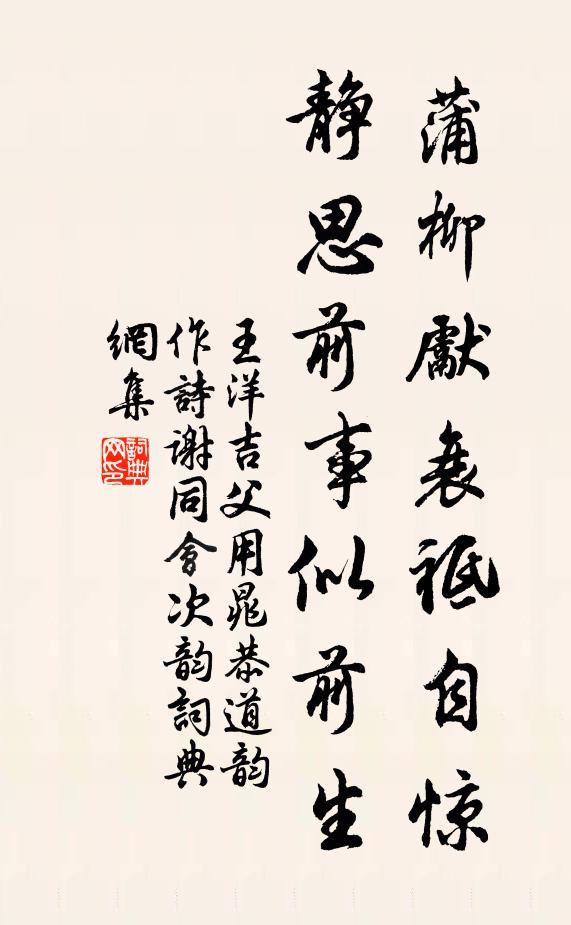 蒲柳獻衰祗自惊
静思前事似前生
王洋吉父用晁恭道韵
作詩謝同會次韵詞典
網集
詞典
网印